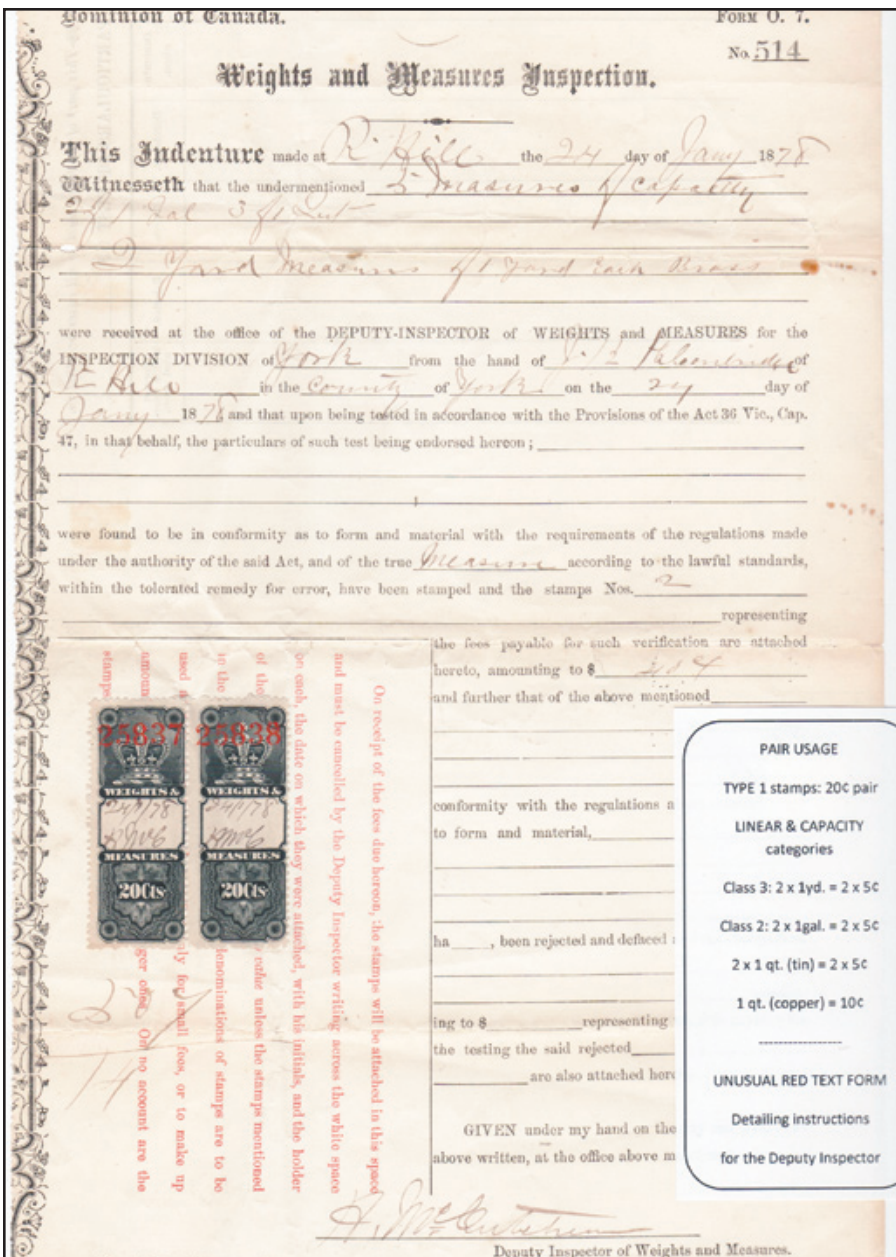 Dominion of Canada.
FORM O. 7.
No. 514
Weights and Measures Inspection.
This Indenture made at R. Hill the 24 day of Jany 1878
Witnesseth that the undermentioned 5 Measures of Capacity
2 of 1 Gal 3 of 1 Qut
2 Yard Measures of 1 Yard Each Brass
were received at the office of the DEPUTY-INSPECTOR of WEIGHTS and MEASURES for the
INSPECTION DIVISION of York from the hand of of
R Hill in the County of York on the 24 day of
Jany 1878 and that upon being tested in accordance with the Provisions of the Act 36 Vic., Cap.
47, in that behalf, the particulars of such test being endorsed hereon;
were found to be in conformity as to form and material with the requirements of the regulations made
under the authority of the said Act, and of the true Measure according to the lawful standards,
within the tolerated remedy for error, have been stamped and the stamps Nos. 2
representing
the fees payable for such verification are attached
hereto, amounting to $
and further that of the above mentioned
conformity with the regulations a
to form and material,
ha , been rejected and defaced
ing to $ representing
the testing the said rejected
are also attached here
GIVEN under my hand on the
above written, at the office above m
Deputy Inspector of Weights and Measures.
On receipt of the fees due hereon, the stamps will be attached in this space
and must be cancelled by the Deputy Inspector writing across the white space
on each, the date on which they were attached, with his initials, and the holder
of the value unless the stamps mentioned
in the denominations of stamps are to be
used nly for small fees, or to make up
amoun ger ones. On no account are the
stamps
25837
WEIGHTS &
24/1/78
MEASURES
20Cts.
25838
WEIGHTS &
24/1/78
MEASURES
20Cts.
PAIR USAGE
TYPE 1 stamps: 20¢ pair
LINEAR & CAPACITY
categories
Class 3: 2 x 1yd. = 2 x 5¢
Class 2: 2 x 1gal. = 2 x 5¢
2 x 1 qt. (tin) = 2 x 5¢
1 qt. (copper) = 10¢
----------------
UNUSUAL RED TEXT FORM
Detailing instructions
for the Deputy Inspector